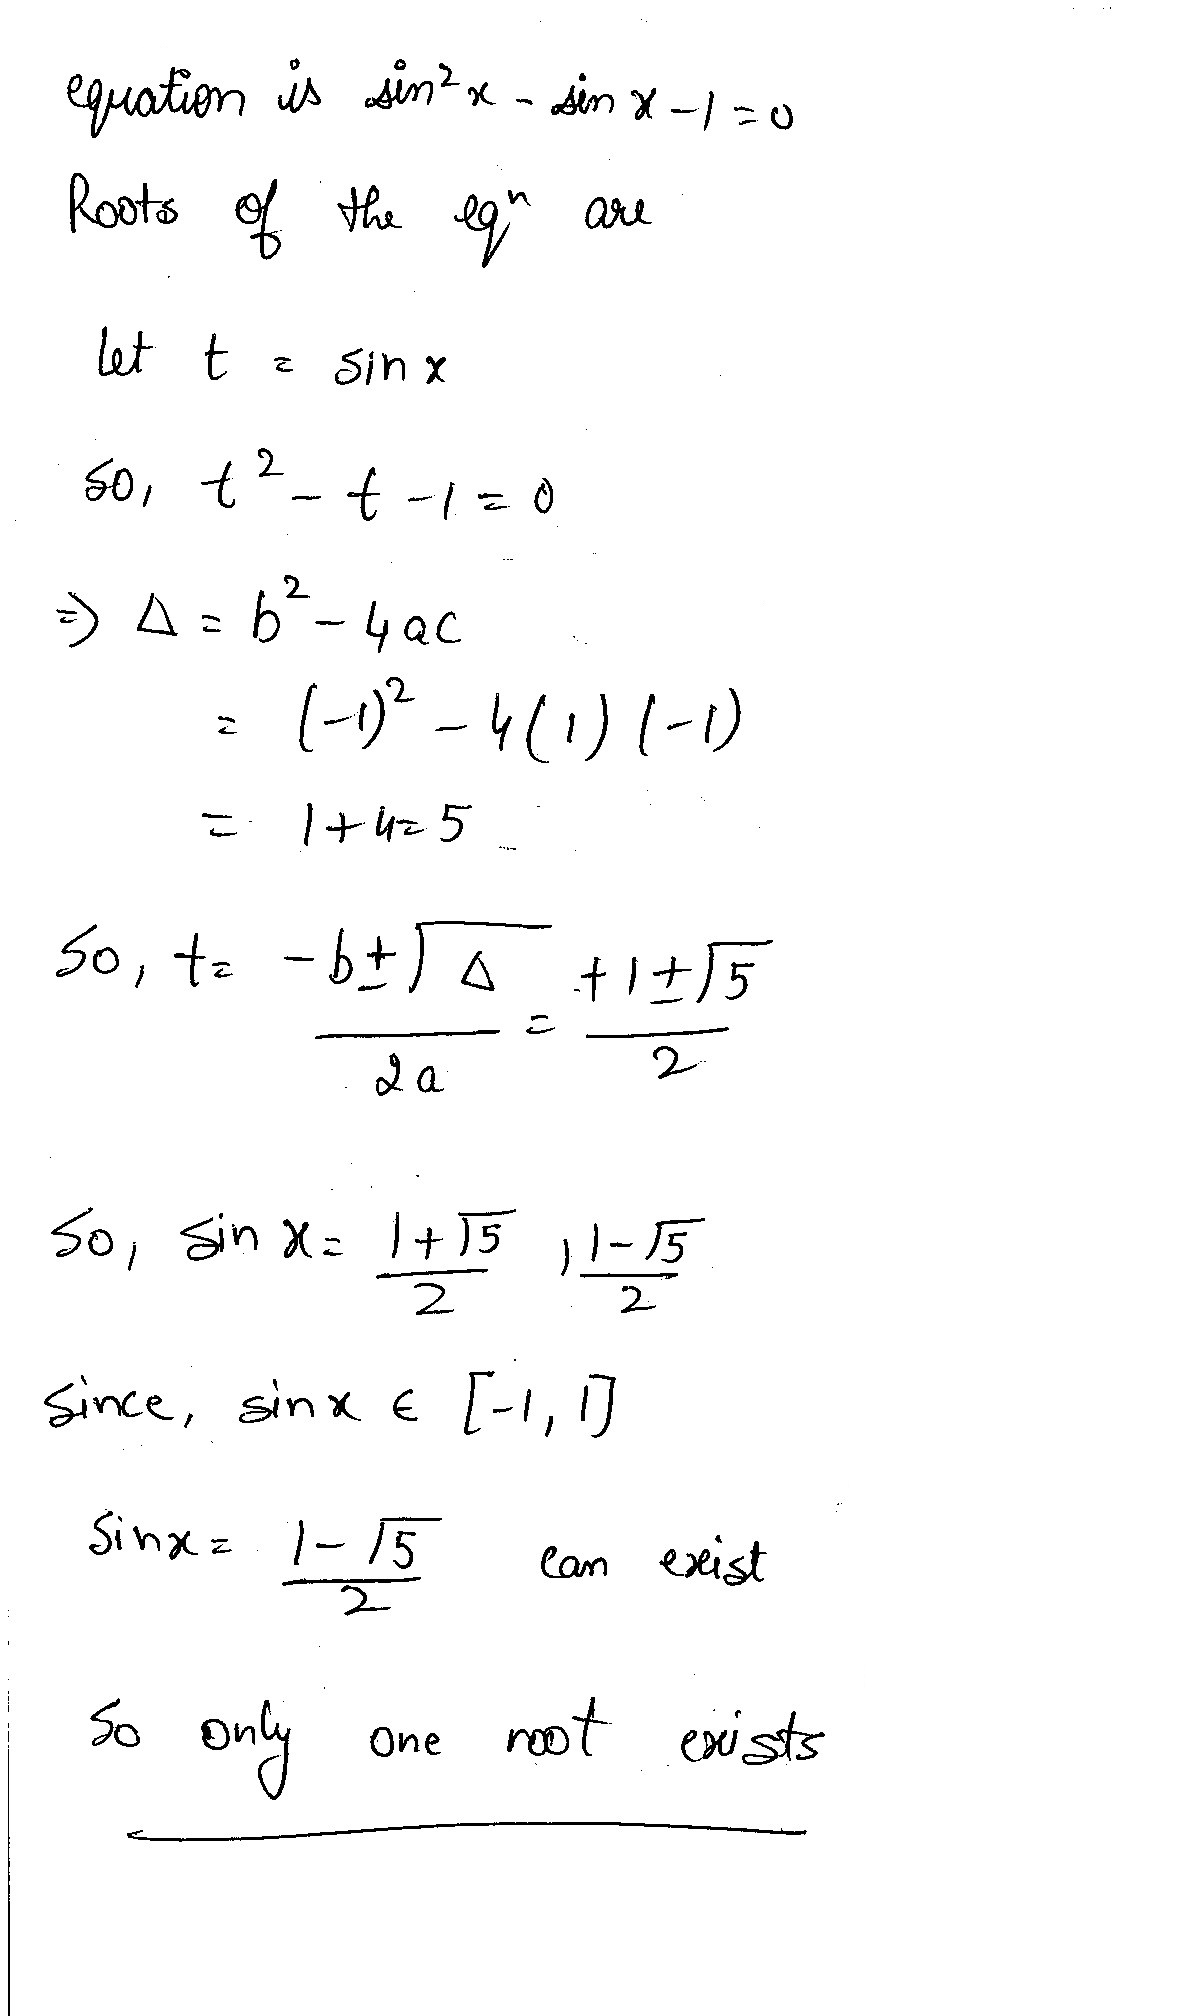 equation is sin²x - sin x - 1 = 0
Roots of the eqⁿ are
let t = sin x
so, t² - t - 1 = 0
⇒ Δ = b² - 4ac
= (-1)² - 4(1)(-1)
= 1+4=5
So, t = (-b±√Δ)/2a = (+1±√5)/2
So, sin x = (1+√5)/2 , (1-√5)/2
Since, sin x ∈ [-1, 1]
Sin x = (1-√5)/2 can exist
So only one root exists